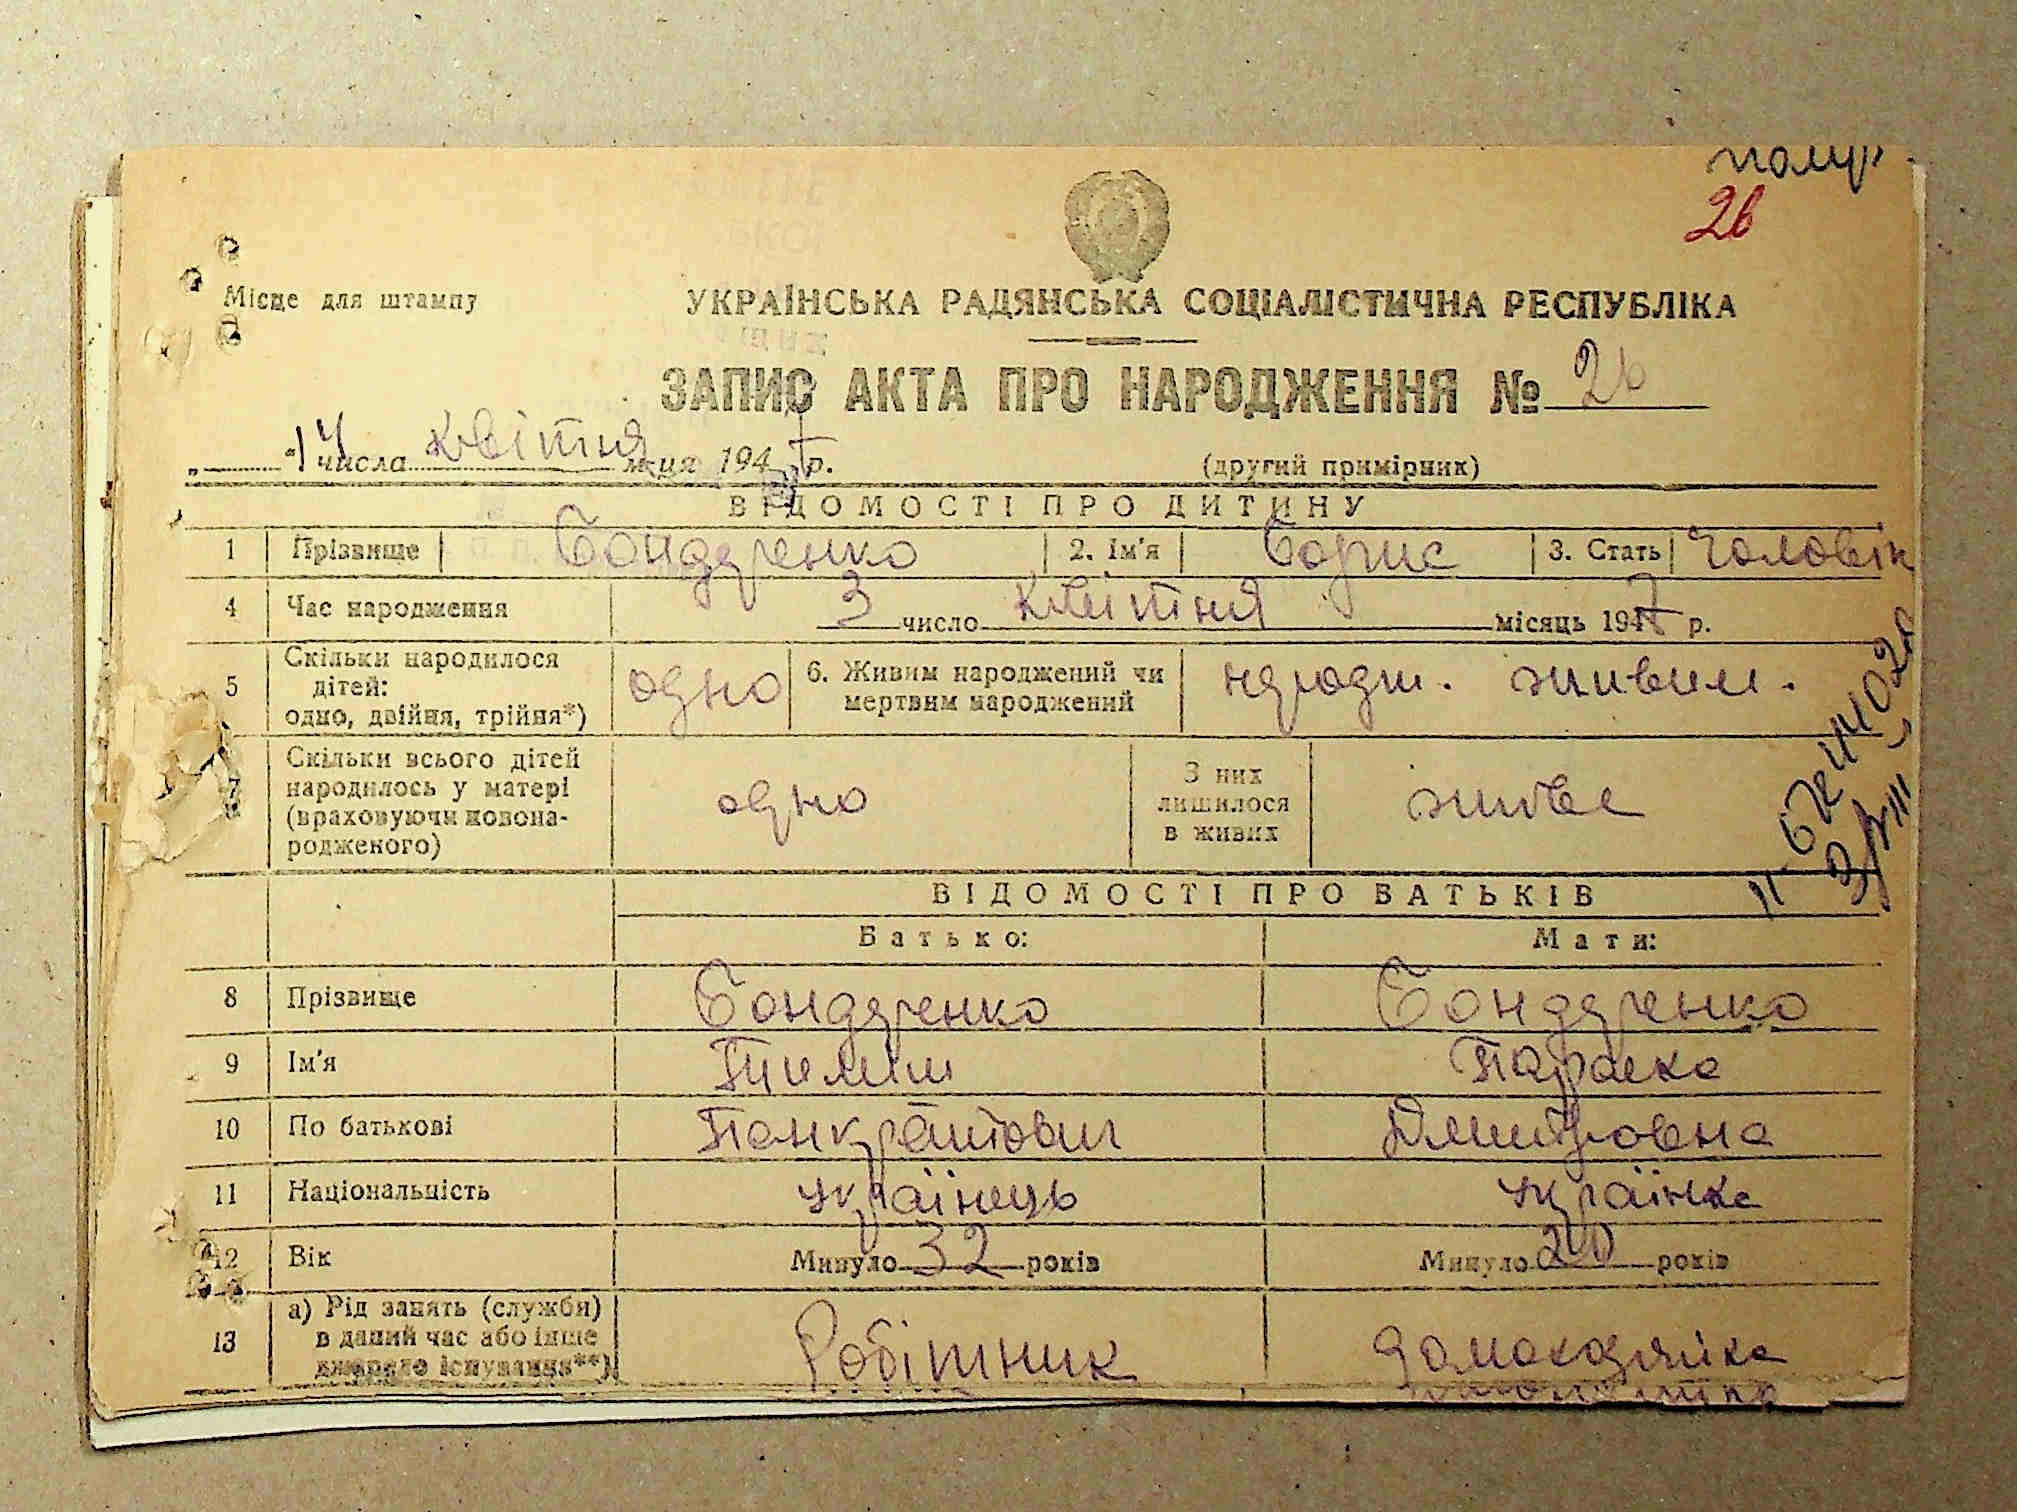 26
Місце для штампу
УКРАЇНСЬКА РАДЯНСЬКА СОЦІАЛІСТИЧНА РЕСПУБЛІКА
ЗАПИС АКТА ПРО НАРОДЖЕННЯ № 26
„ “ 14 числа квітня м-ця 1947 р.
(другий примірник)
ВІДОМОСТІ ПРО ДИТИНУ
1 Прізвище Бондаренко 2. Ім'я Борис 3. Стать Чоловік
4 Час народження 3 число квітня місяць 1947 р.
5 Скільки народилося дітей: одно, двійня, трійня*) одно 6. Живим народжений чи мертвим народжений народж. живим.
7 Скільки всього дітей народилось у матері (враховуючи новонародженого) одно З них лишилося в живих живе
ВІДОМОСТІ ПРО БАТЬКІВ
Батько: Мати:
8 Прізвище Бондаренко Бондаренко
9 Ім'я Тиміш Параска
10 По батькові Панкратович Дмитровна
11 Національність українець українка
12 Вік Минуло 32 років Минуло 20 років
13 а) Рід занять (служби) в даний час або інше джерело існування**) Робітник домохозяйка